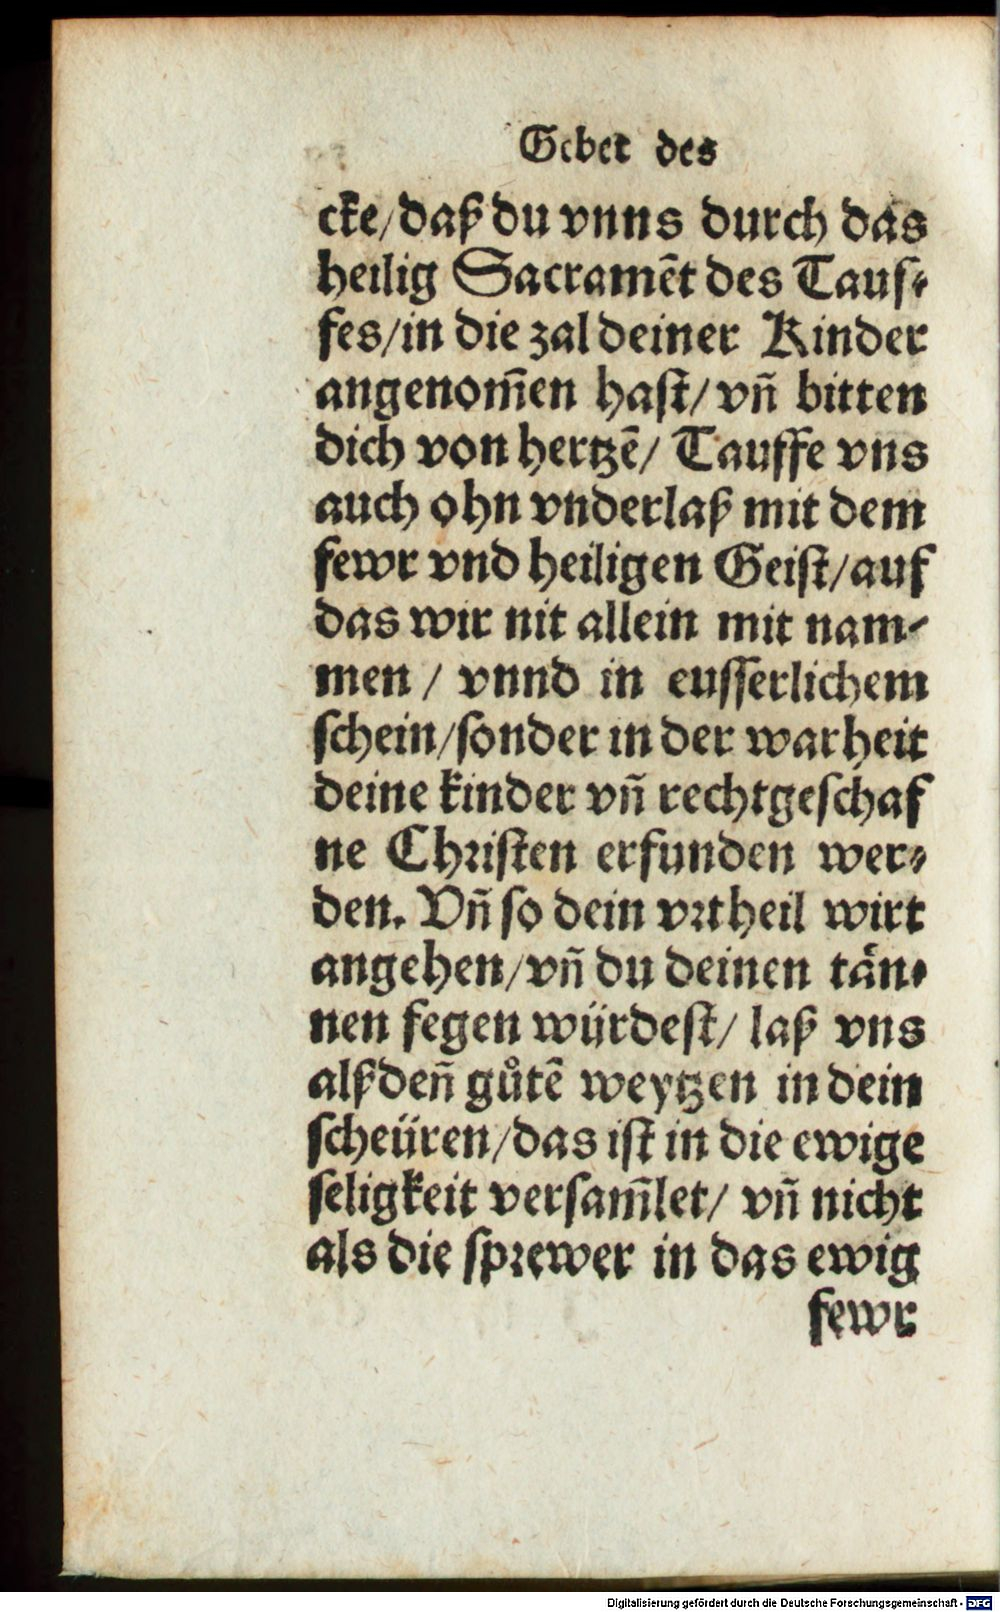 Gebet des
cke/daß du vnns durch das
heilig Sacramēt des Tauf-
fes/in die zal deiner Kinder
angenom̄en hast/ vn̄ bitten
dich von hertzē/ Tauffe vns
auch ohn vnderlaß mit dem
fewr vnd heiligen Geist/auf
das wir nit allein mit nam-
men / vnnd in eusserlichem
schein/sonder in der warheit
deine kinder vn̄ rechtgeschaf
ne Christen erfunden wer-
den. Vn̄ so dein vrtheil wirt
angehen/vn̄ du deinen tän-
nen fegen würdest/ laß vns
alßden̄ gůtē weytzen in dein
scheüren/das ist in die ewige
seligkeit versam̄let/ vn̄ nicht
als die sprewer in das ewig
fewr
Digitalisierung gefördert durch die Deutsche Forschungsgemeinschaft - DFG